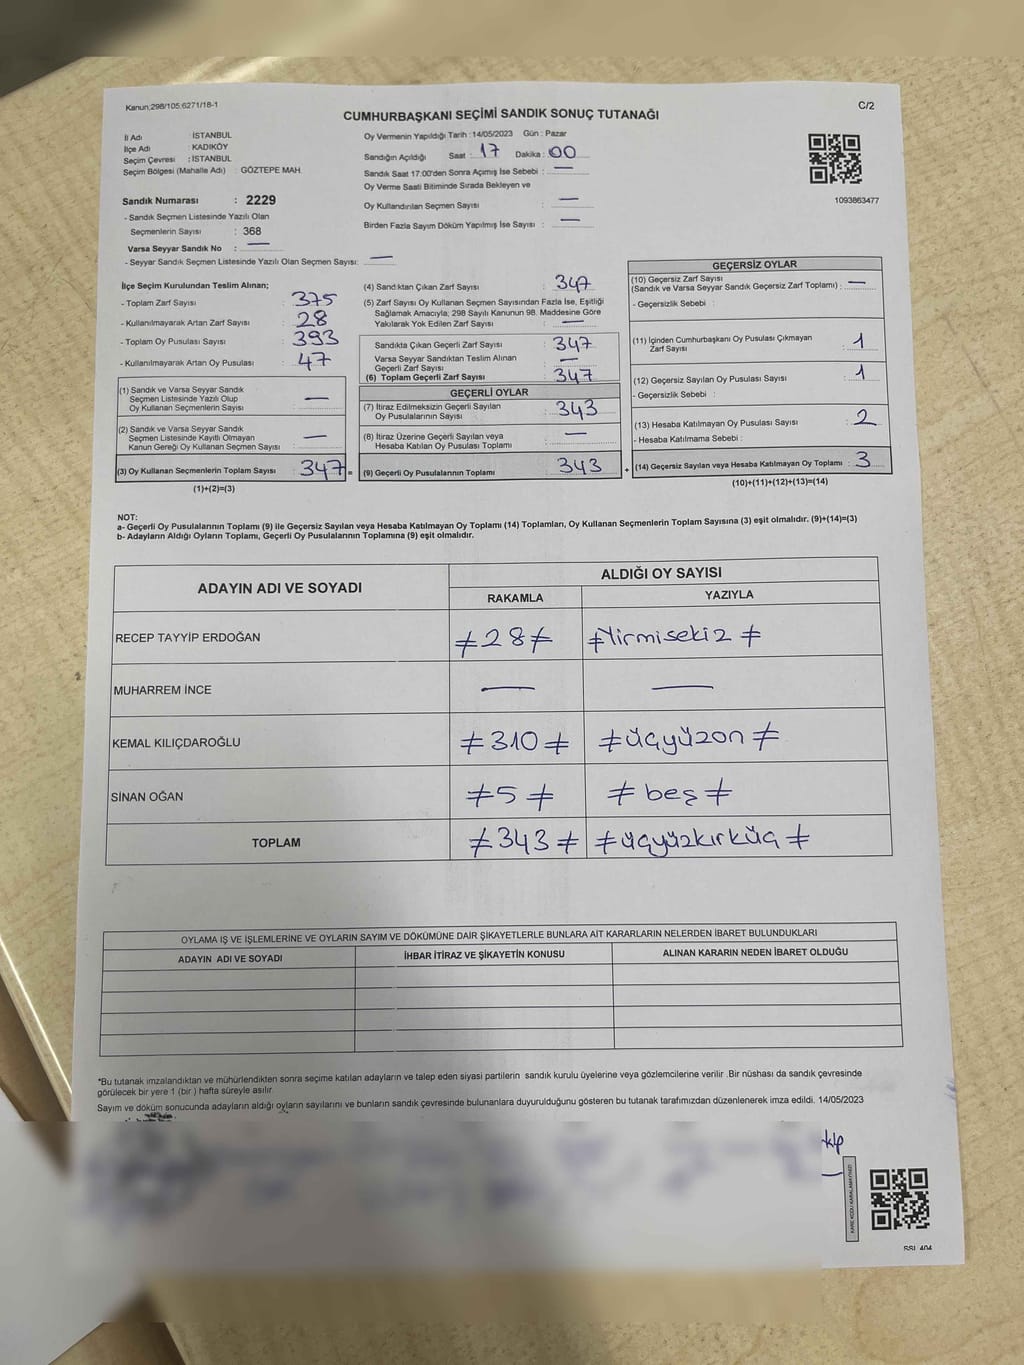 Kanun:298/105:6271/18-1
C/2
CUMHURBAŞKANI SEÇİMİ SANDIK SONUÇ TUTANAĞI
İl Adı : İSTANBUL
İlçe Adı : KADIKÖY
Seçim Çevresi : İSTANBUL
Seçim Bölgesi (Mahalle Adı) : GÖZTEPE MAH.
Sandık Numarası : 2229
- Sandık Seçmen Listesinde Yazılı Olan
Seçmenlerin Sayısı : 368
Varsa Seyyar Sandık No : —
- Seyyar Sandık Seçmen Listesinde Yazılı Olan Seçmen Sayısı: —
Oy Vermenin Yapıldığı Tarih : 14/05/2023 Gün : Pazar
Sandığın Açıldığı Saat : 17 Dakika : 00
Sandık Saat 17:00'den Sonra Açımış İse Sebebi : —
Oy Verme Saati Bitiminde Sırada Bekleyen ve
Oy Kullandırılan Seçmen Sayısı —
Birden Fazla Sayım Döküm Yapılmış İse Sayısı : —
1093863477
İlçe Seçim Kurulundan Teslim Alınan;
- Toplam Zarf Sayısı : 375
- Kullanılmayarak Artan Zarf Sayısı : 28
- Toplam Oy Pusulası Sayısı : 393
- Kullanılmayarak Artan Oy Pusulası : 47
(1) Sandık ve Varsa Seyyar Sandık
Seçmen Listesinde Yazılı Olup
Oy Kullanan Seçmenlerin Sayısı —
(2) Sandık ve Varsa Seyyar Sandık
Seçmen Listesinde Kayıtlı Olmayan
Kanun Gereği Oy Kullanan Seçmen Sayısı —
(3) Oy Kullanan Seçmenlerin Toplam Sayısı 347 =
(1)+(2)=(3)
(4) Sandıktan Çıkan Zarf Sayısı : 347
(5) Zarf Sayısı Oy Kullanan Seçmen Sayısından Fazla İse, Eşitliği
Sağlamak Amacıyla, 298 Sayılı Kanunun 98. Maddesine Göre
Yakılarak Yok Edilen Zarf Sayısı : —
Sandıkta Çıkan Geçerli Zarf Sayısı : 347
Varsa Seyyar Sandıktan Teslim Alınan
Geçerli Zarf Sayısı : —
(6) Toplam Geçerli Zarf Sayısı : 347
GEÇERLİ OYLAR
(7) İtiraz Edilmeksizin Geçerli Sayılan
Oy Pusulalarının Sayısı : 343
(8) İtiraz Üzerine Geçerli Sayılan veya
Hesaba Katılan Oy Pusulası Toplamı : —
(9) Geçerli Oy Pusulalarının Toplamı : 343 +
GEÇERSİZ OYLAR
(10) Geçersiz Zarf Sayısı
(Sandık ve Varsa Seyyar Sandık Geçersiz Zarf Toplamı) : —
- Geçersizlik Sebebi :
(11) İçinden Cumhurbaşkanı Oy Pusulası Çıkmayan
Zarf Sayısı : 1
(12) Geçersiz Sayılan Oy Pusulası Sayısı : 1
- Geçersizlik Sebebi :
(13) Hesaba Katılmayan Oy Pusulası Sayısı : 2
- Hesaba Katılmama Sebebi :
(14) Geçersiz Sayılan veya Hesaba Katılmayan Oy Toplamı : 3
(10)+(11)+(12)+(13)=(14)
NOT:
a- Geçerli Oy Pusulalarının Toplamı (9) ile Geçersiz Sayılan veya Hesaba Katılmayan Oy Toplamı (14) Toplamları, Oy Kullanan Seçmenlerin Toplam Sayısına (3) eşit olmalıdır. (9)+(14)=(3)
b- Adayların Aldığı Oyların Toplamı, Geçerli Oy Pusulalarının Toplamına (9) eşit olmalıdır.
ADAYIN ADI VE SOYADI
ALDIĞI OY SAYISI
RAKAMLA YAZIYLA
RECEP TAYYİP ERDOĞAN ≠28≠ ≠Yirmisekiz≠
MUHARREM İNCE — —
KEMAL KILIÇDAROĞLU ≠310≠ ≠üçyüzon≠
SİNAN OĞAN ≠5≠ ≠beş≠
TOPLAM ≠343≠ ≠üçyüzkırküç≠
OYLAMA İŞ VE İŞLEMLERİNE VE OYLARIN SAYIM VE DÖKÜMÜNE DAİR ŞİKAYETLERLE BUNLARA AİT KARARLARIN NELERDEN İBARET BULUNDUKLARI
ADAYIN ADI VE SOYADI İHBAR İTİRAZ VE ŞİKAYETİN KONUSU ALINAN KARARIN NEDEN İBARET OLDUĞU
*Bu tutanak imzalandıktan ve mühürlendikten sonra seçime katılan adayların ve talep eden siyasi partilerin sandık kurulu üyelerine veya gözlemcilerine verilir .Bir nüshası da sandık çevresinde
görülecek bir yere 1 (bir ) hafta süreyle asılır.
Sayım ve döküm sonucunda adayların aldığı oyların sayılarını ve bunların sandık çevresinde bulunanlara duyurulduğunu gösteren bu tutanak tarafımızdan düzenlenerek imza edildi. 14/05/2023